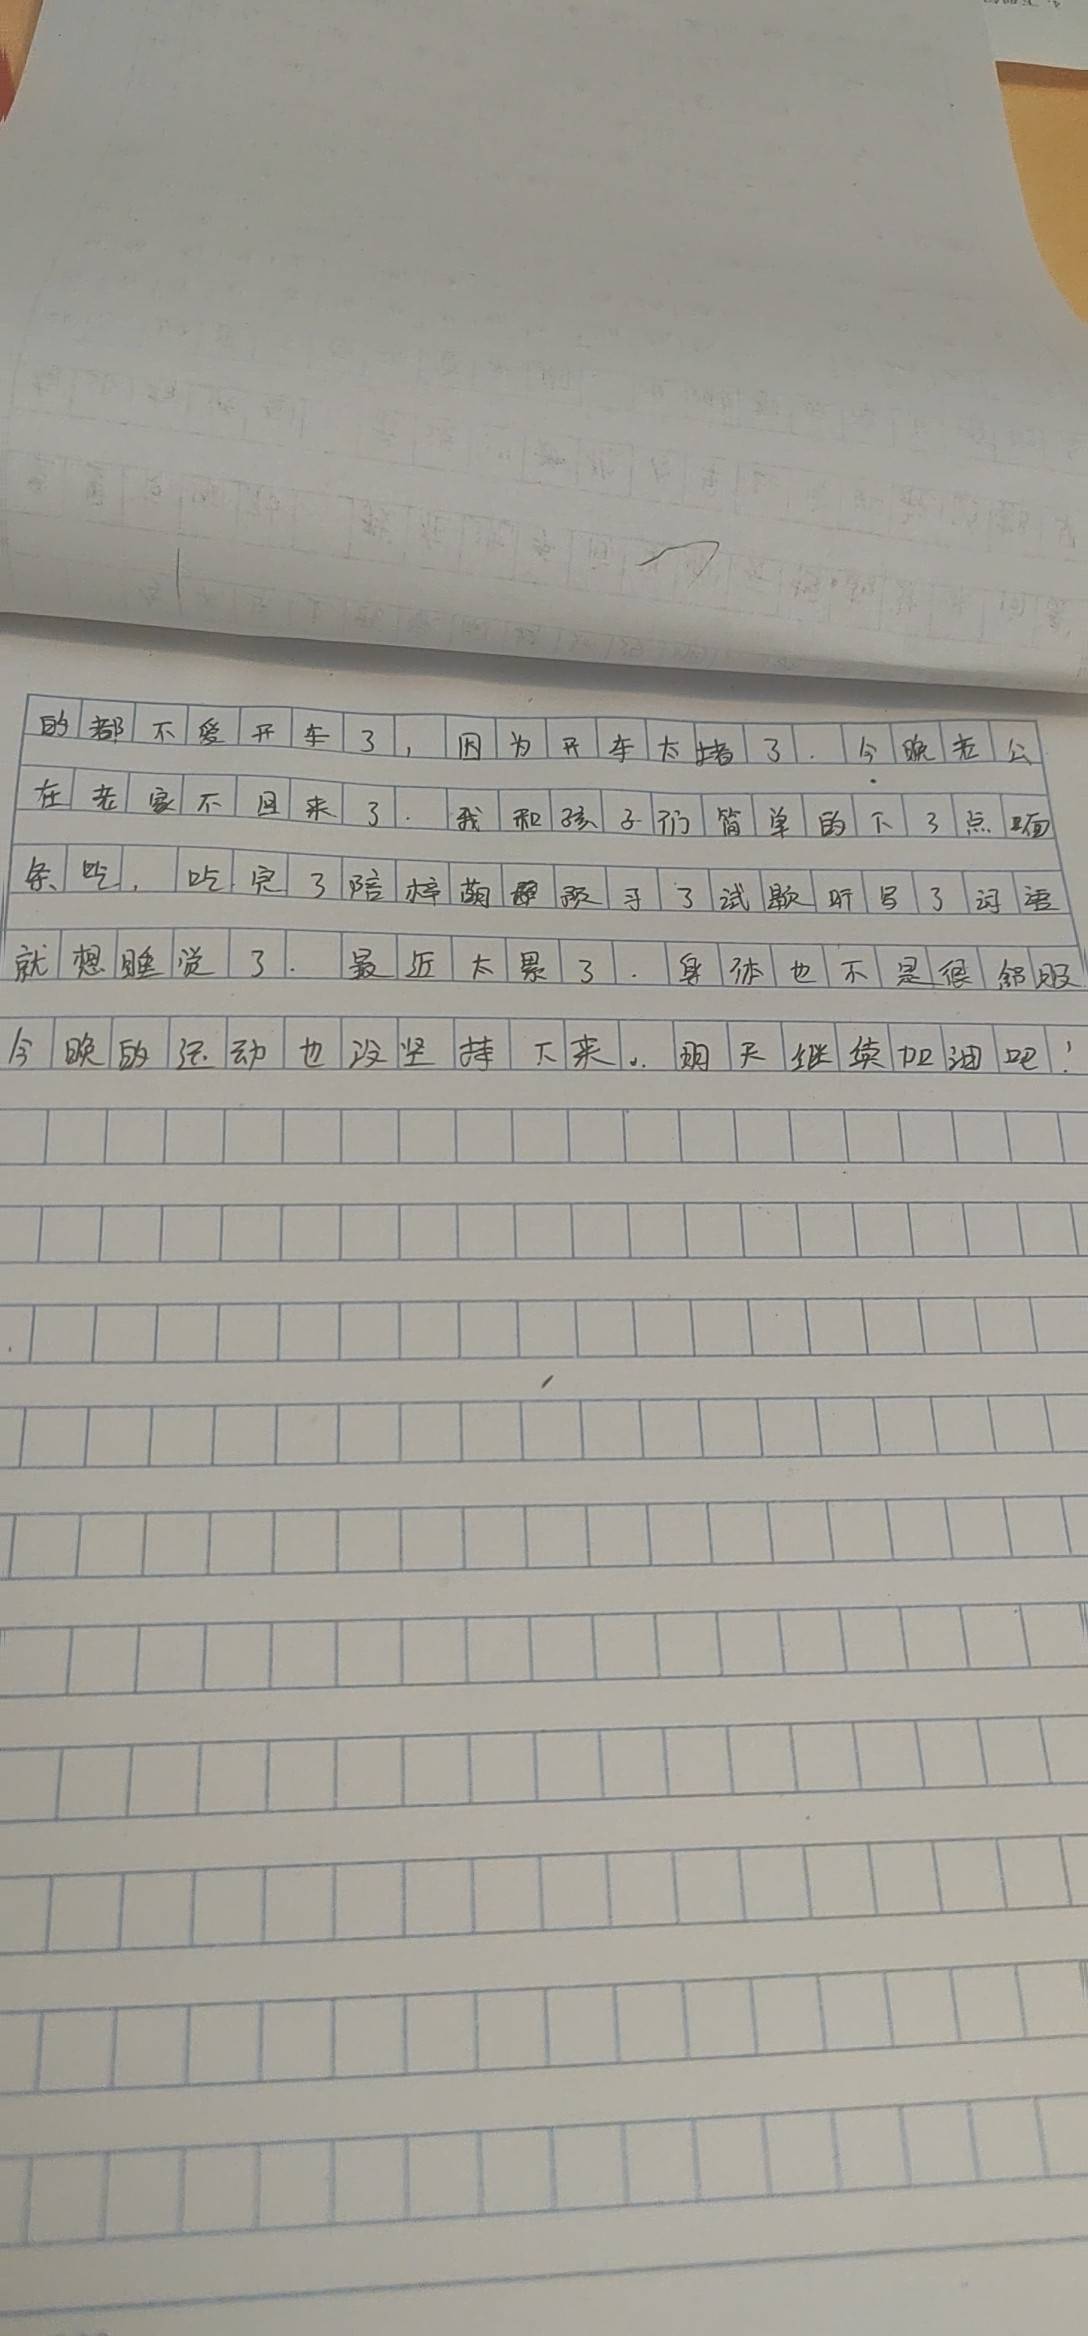 的都不爱开车了,因为开车太堵了.今晚老公
在老家不回来了.我和孩子们简单的下了点面
条吃,吃完了陪梓萌预习了试题听写了词语
就想睡觉了.最近太累了.身体也不是很舒服
今晚的运动也没坚持下来。明天继续加油吧!